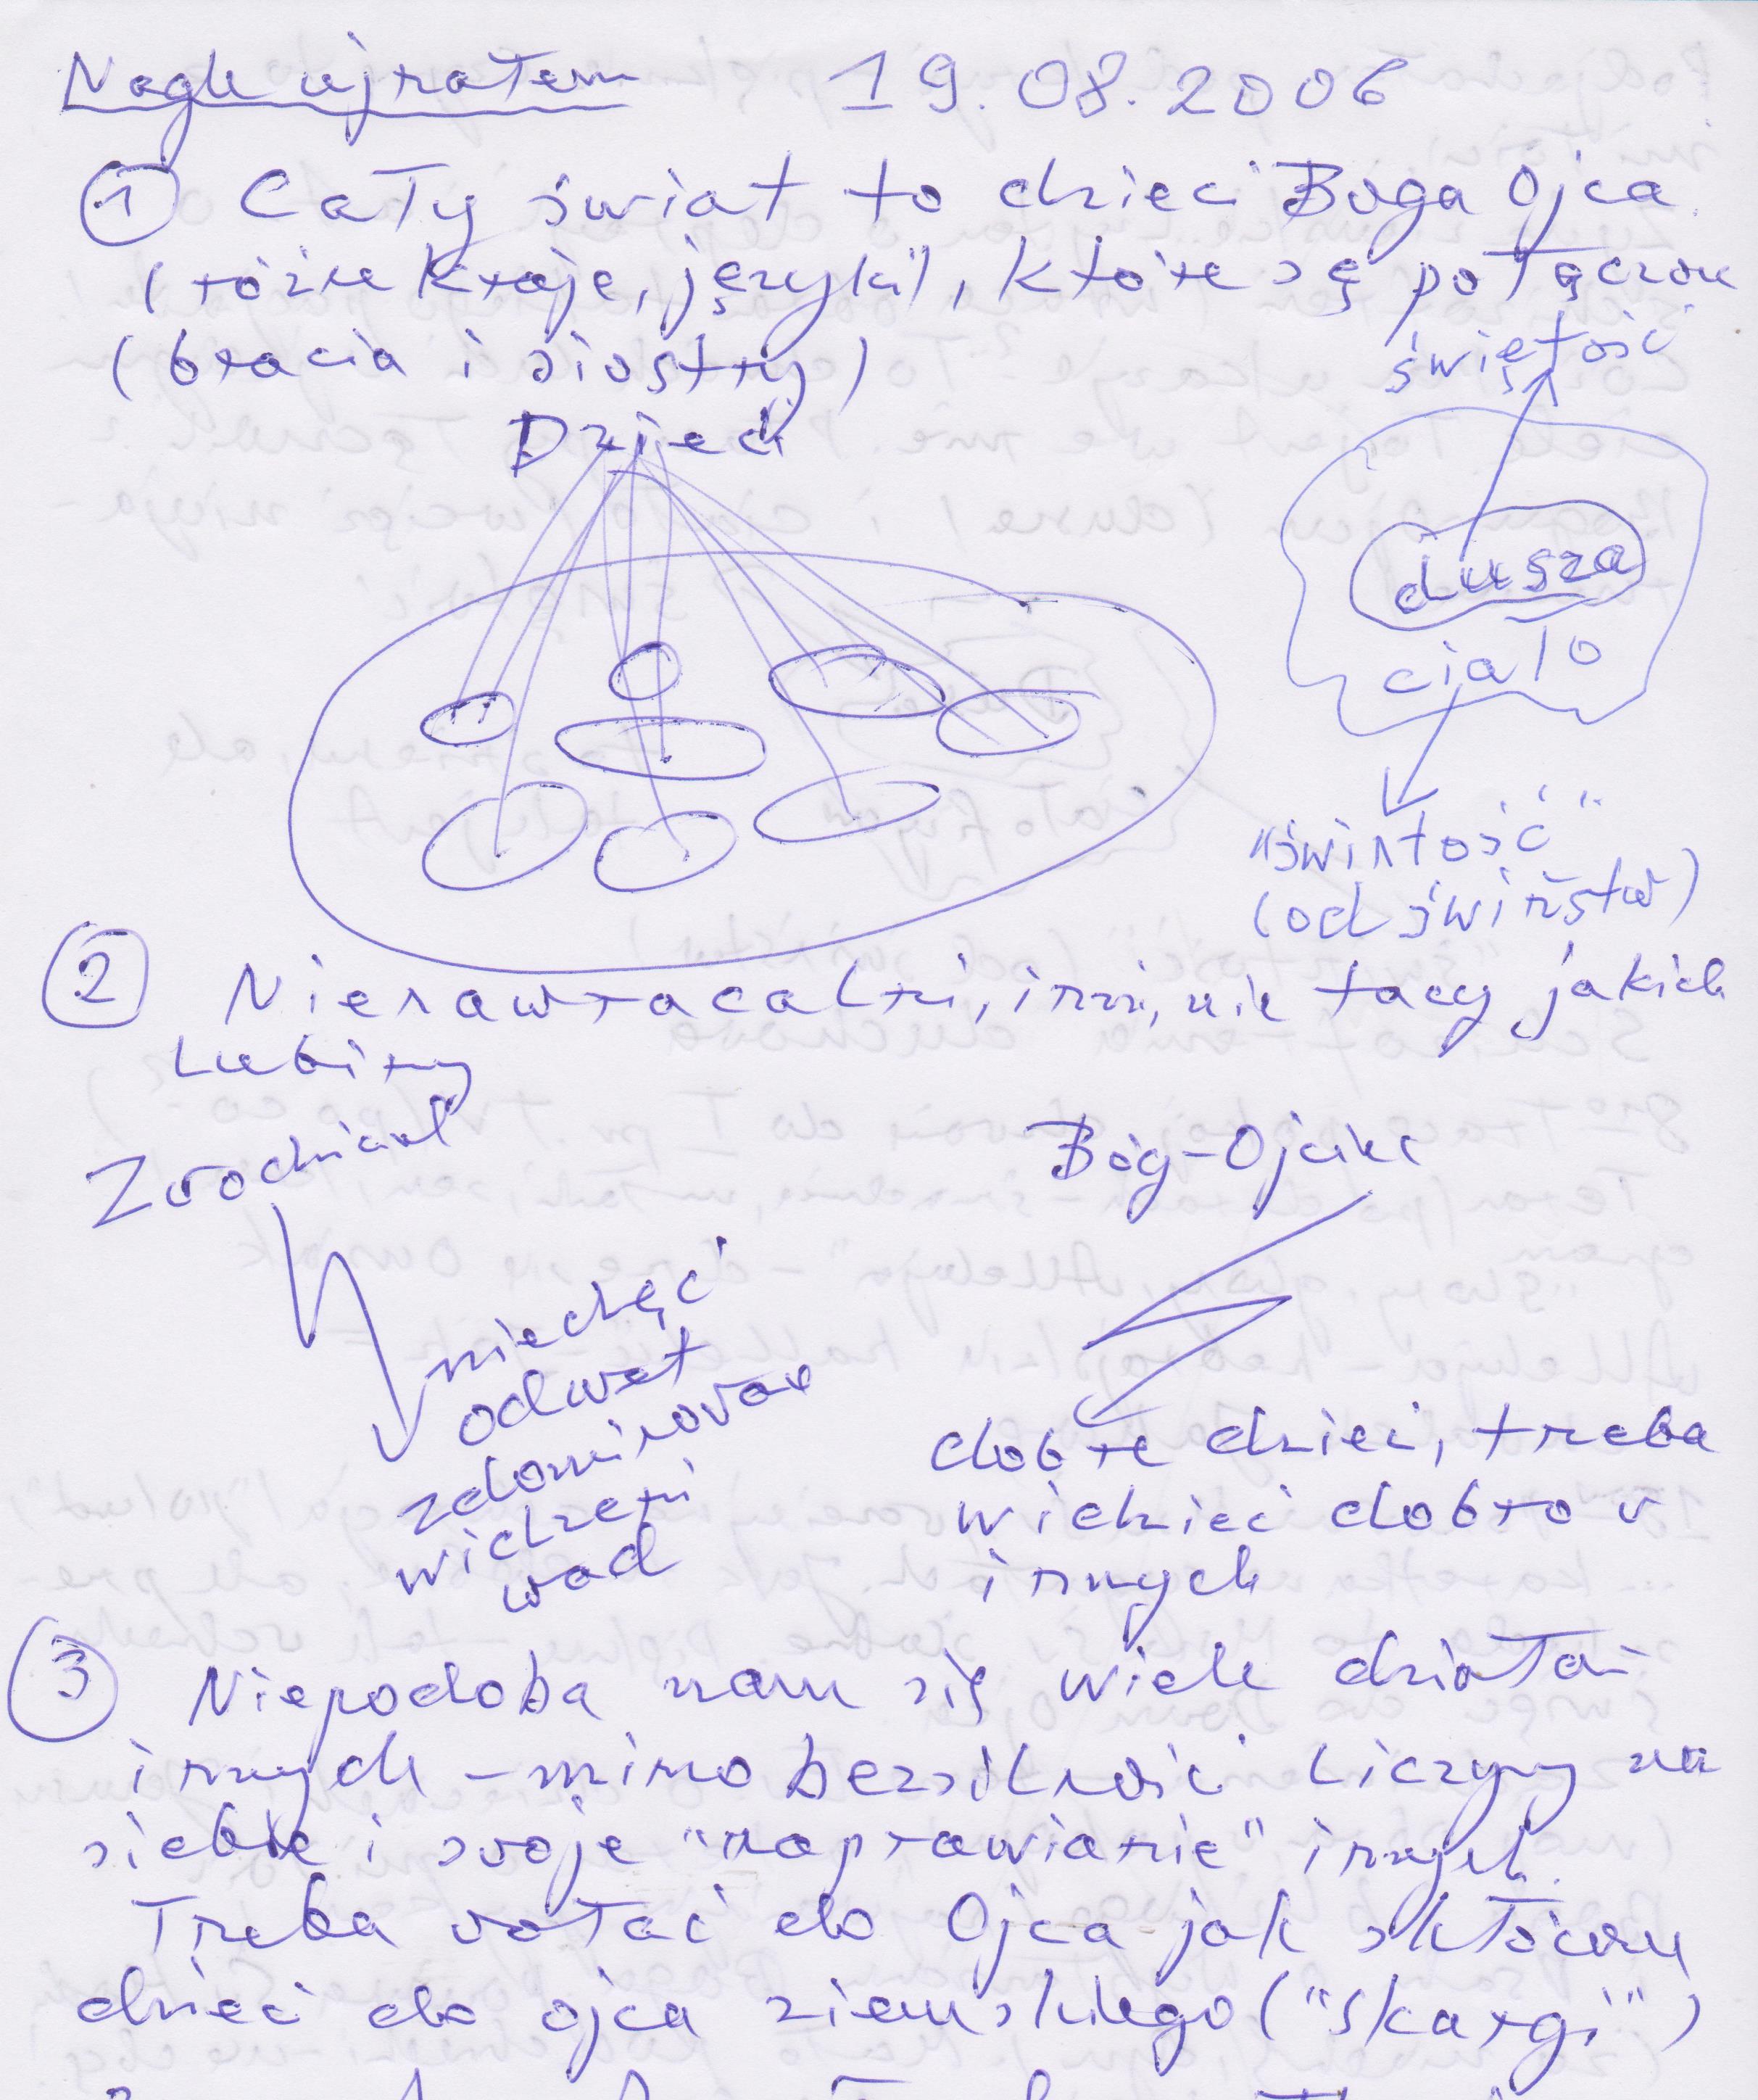 Nagle ujrałem 19.08.2006
1 Cały świat to dzieci Boga Ojca
(różne kraje, języki), które są połączone
(bracia i siostry)
świętość
Dzieci
dusza
ciało
"świntość"
(od świństw)
2 Nienawracalni, inni, nie tacy jakich
Lubimy
Zwodniciel
Bóg-Ojciec
niechęć
odwet
zdominować
widzeni
wad
dobre dzieci, trzeba
widzieć dobro w
innych
3 Niepodoba nam się wiele działań
innych - mimo bezsilności liczymy na
siebie i swoje "naprawianie" innych.
Trzeba wołać do Ojca jak skłócone
dzieci do ojca ziemskiego ("skargi")